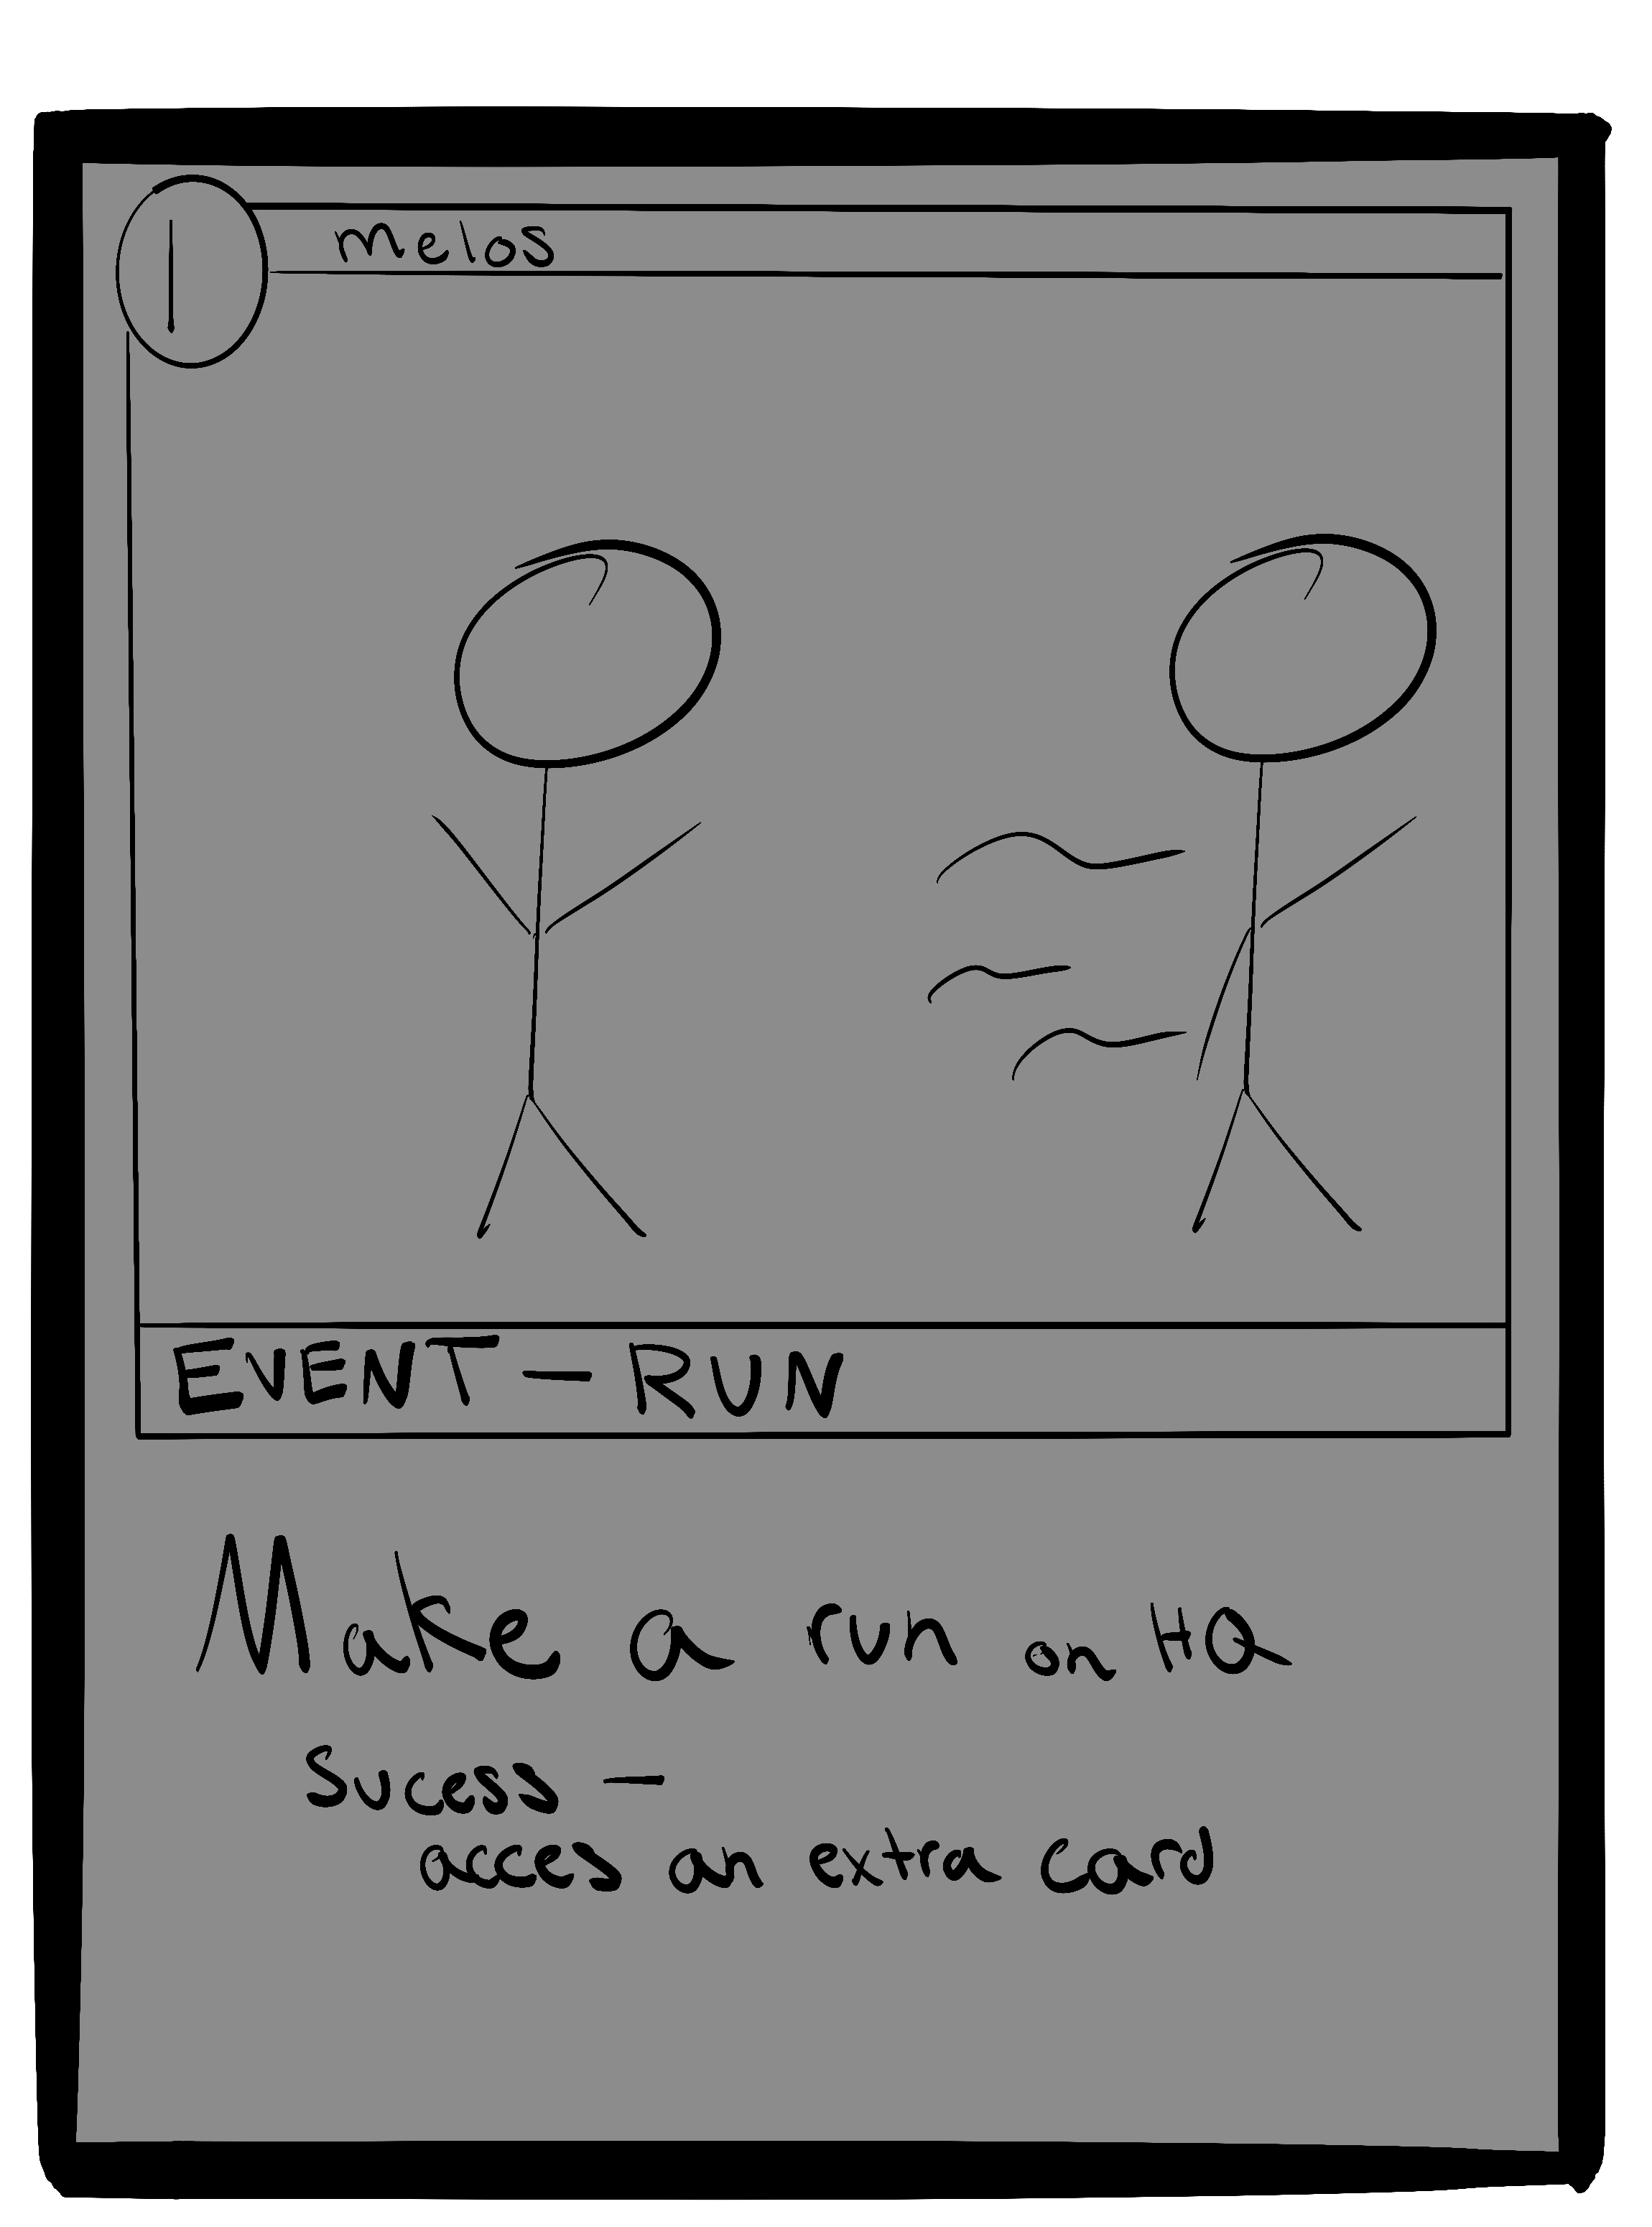 1
melos
EVENT — RUN
Make a run on HQ
Sucess —
acces an extra card